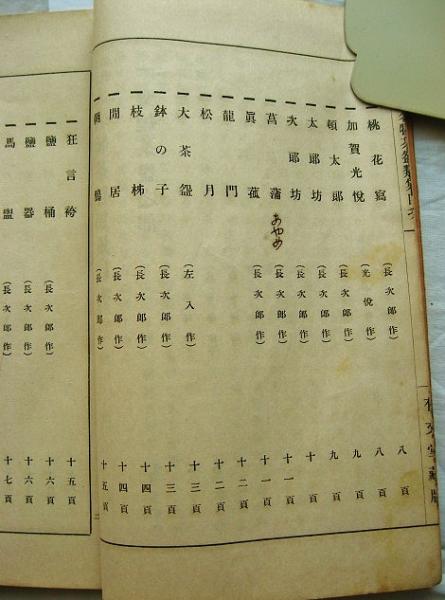 一 桃花寫 (長次郎作) 八頁
一 加賀光悅 (光悅作) 八頁
一 頓太郎 (長次郎作) 九頁
一 太郎坊 (長次郎作) 九頁
一 次郎坊 (長次郎作) 十頁
一 菖蒲 あやめ (長次郎作) 十一頁
一 眞菰 (長次郎作) 十一頁
一 龍門 十二頁
一 松月 十二頁
一 大茶盌 (左入作) 十三頁
一 鉢の子 (長次郎作) 十三頁
一 枝柿 (長次郎作) 十四頁
一 閒居 (長次郎作) 十四頁
(長次郎作) 十五頁
二
一 狂言袴 十五頁
一 鹽桶 (長次郎作) 十六頁
一 鹽器 (長次郎作) 十六頁
一 馬盥 (長次郎作) 十七頁